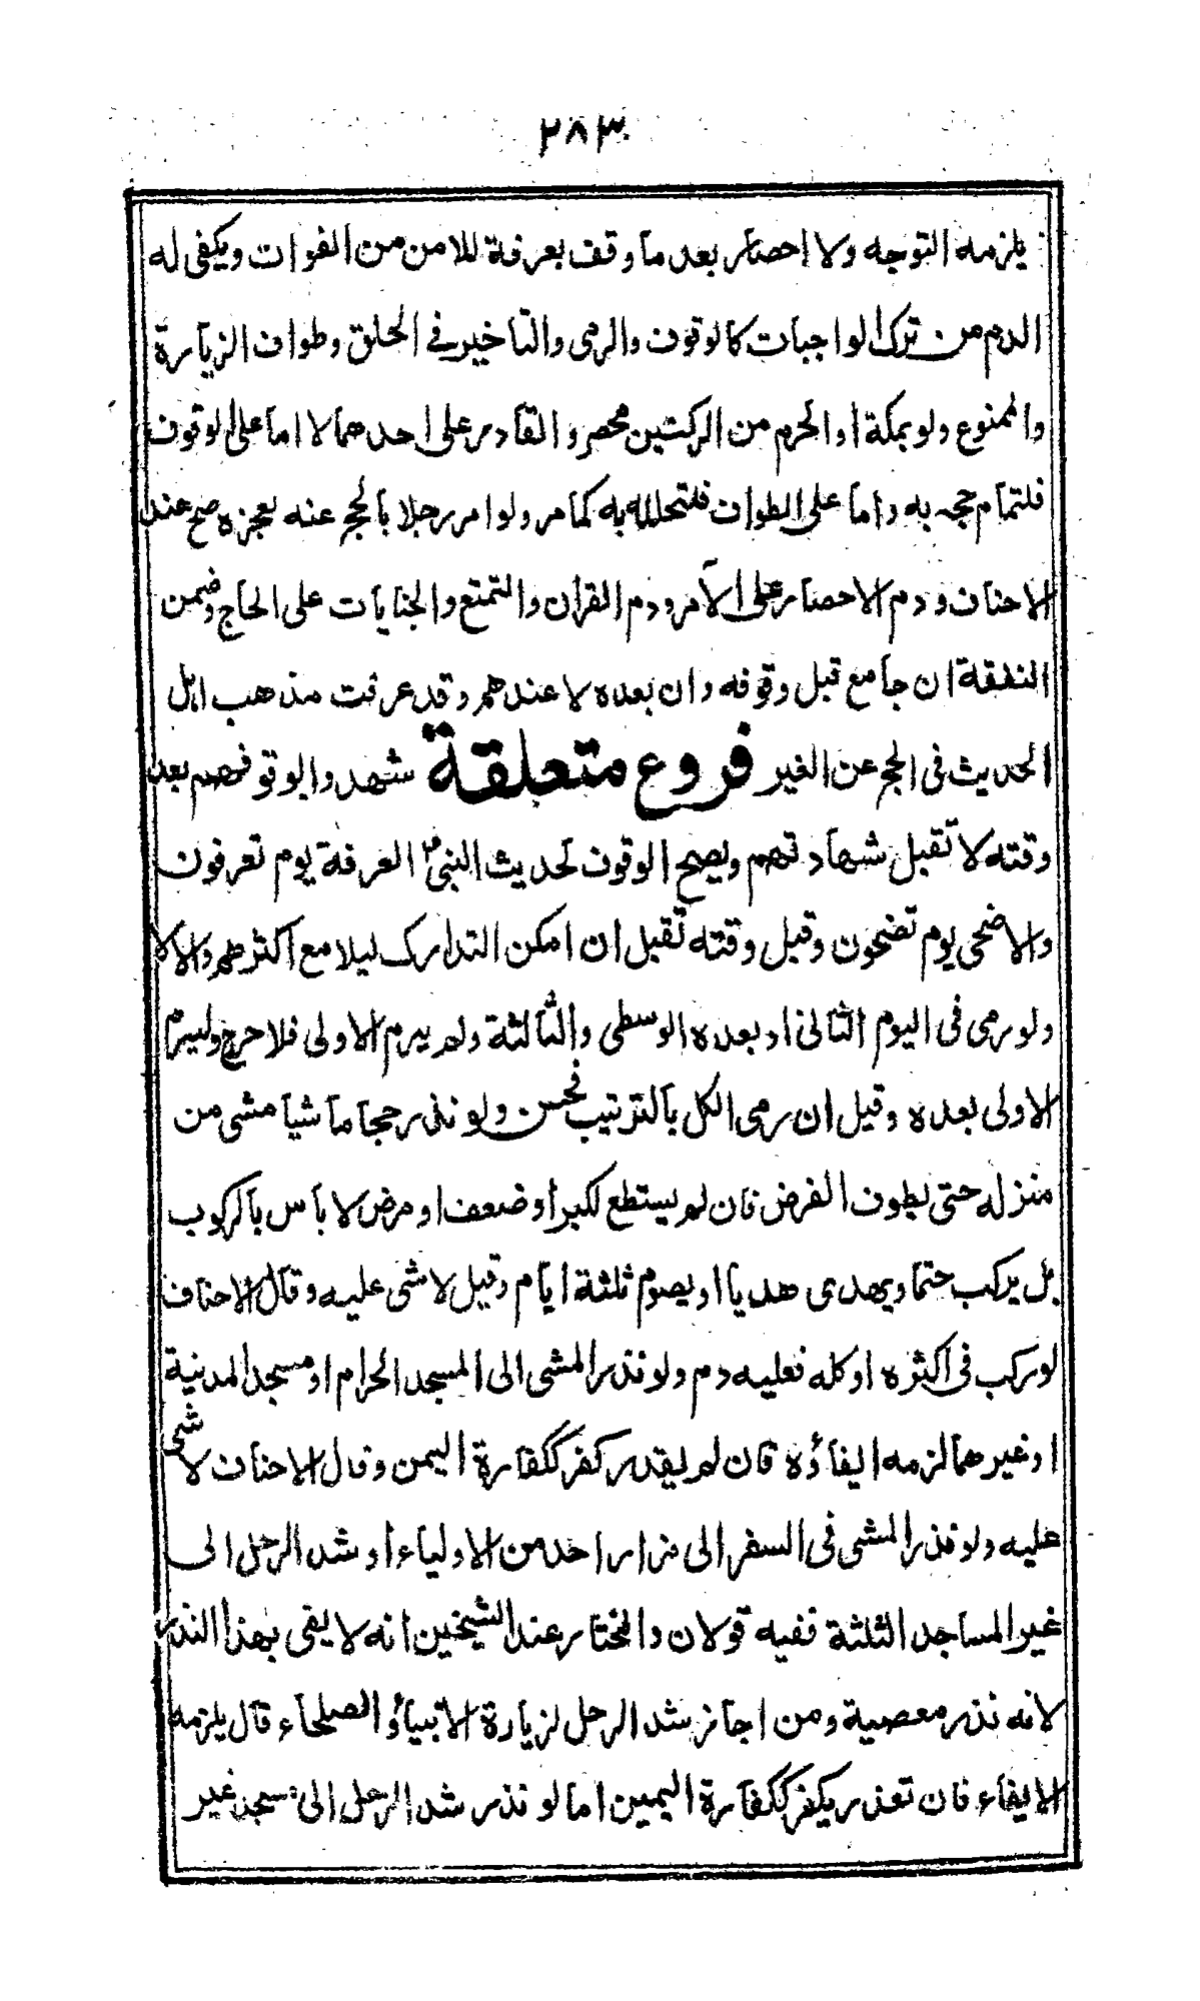 ٢٨٣
يلزمه التوجه ولا احصار بعد ما وقف بعرفة للامن من الفوات ويكفى له
الدم من ترك الواجبات كالوقوف والرمى والتاخير فى الحلق وطواف الزيارة
والممنوع ولو بمكة او الحرم من الركنين محصر والقادر على احدهما لا اما على الوقوف
فلتمام حجه به واما على الطواف فلتحلله به كما مر ولو امر رجلا بالحج عنه لعجزه صح عند
الاحناف ودم الاحصار على الآمر ودم القران والتمتع والجنايات على الحاج وضمن
النفقة ان جامع قبل وقوفه وان بعده لا عندهم وقد عرفت مذهب اهل
الحديث فى الحج عن الغير فروع متعلقة شهدوا بوقوفهم بعد
وقته لا تقبل شهادتهم ويصح الوقوف لحديث النبى ؐ العرفة يوم تعرفون
والاضحى يوم تضحون وقبل وقته تقبل ان امكن التدارك ليلا مع اكثرهم والا لا
ولو رمى فى اليوم الثانى او بعده الوسطى والثالثة ولم يرم الاولى فلا حرج وليرم
الاولى بعده وقيل ان رمى الكل بالترتيب فحسن ولو نذر حجا ماشيا مشى من
منزله حتى يطوف الفرض فان لم يستطع لكبر أو ضعف او مرض لا باس بالركوب
بل يركب حتما ويهدى هديا او يصوم ثلثة ايام وقيل لا شى عليه وقال الاحناف
لو ركب فى اكثره او كله فعليه دم ولو نذر المشى الى المسجد الحرام او مسجد المدينة
او غيرهما لزمه ايفاؤه فان لم يقدر كفر ككفارة اليمن وقال الاحناف لا شى
عليه ولو نذر المشى فى السفر الى مزار احد من الاولياء او شد الرحل الى
غير المساجد الثلثة ففيه قولان والمختار عند الشيخين انه لا يفى بهذا النذر
لانه نذر معصية ومن اجاز شد الرحل لزيارة الانبياء والصلحاء قال يلزمه
الايفاء فان تعذر يكفر ككفارة اليمين اما لو نذر شد الرحل الى مسجد غير